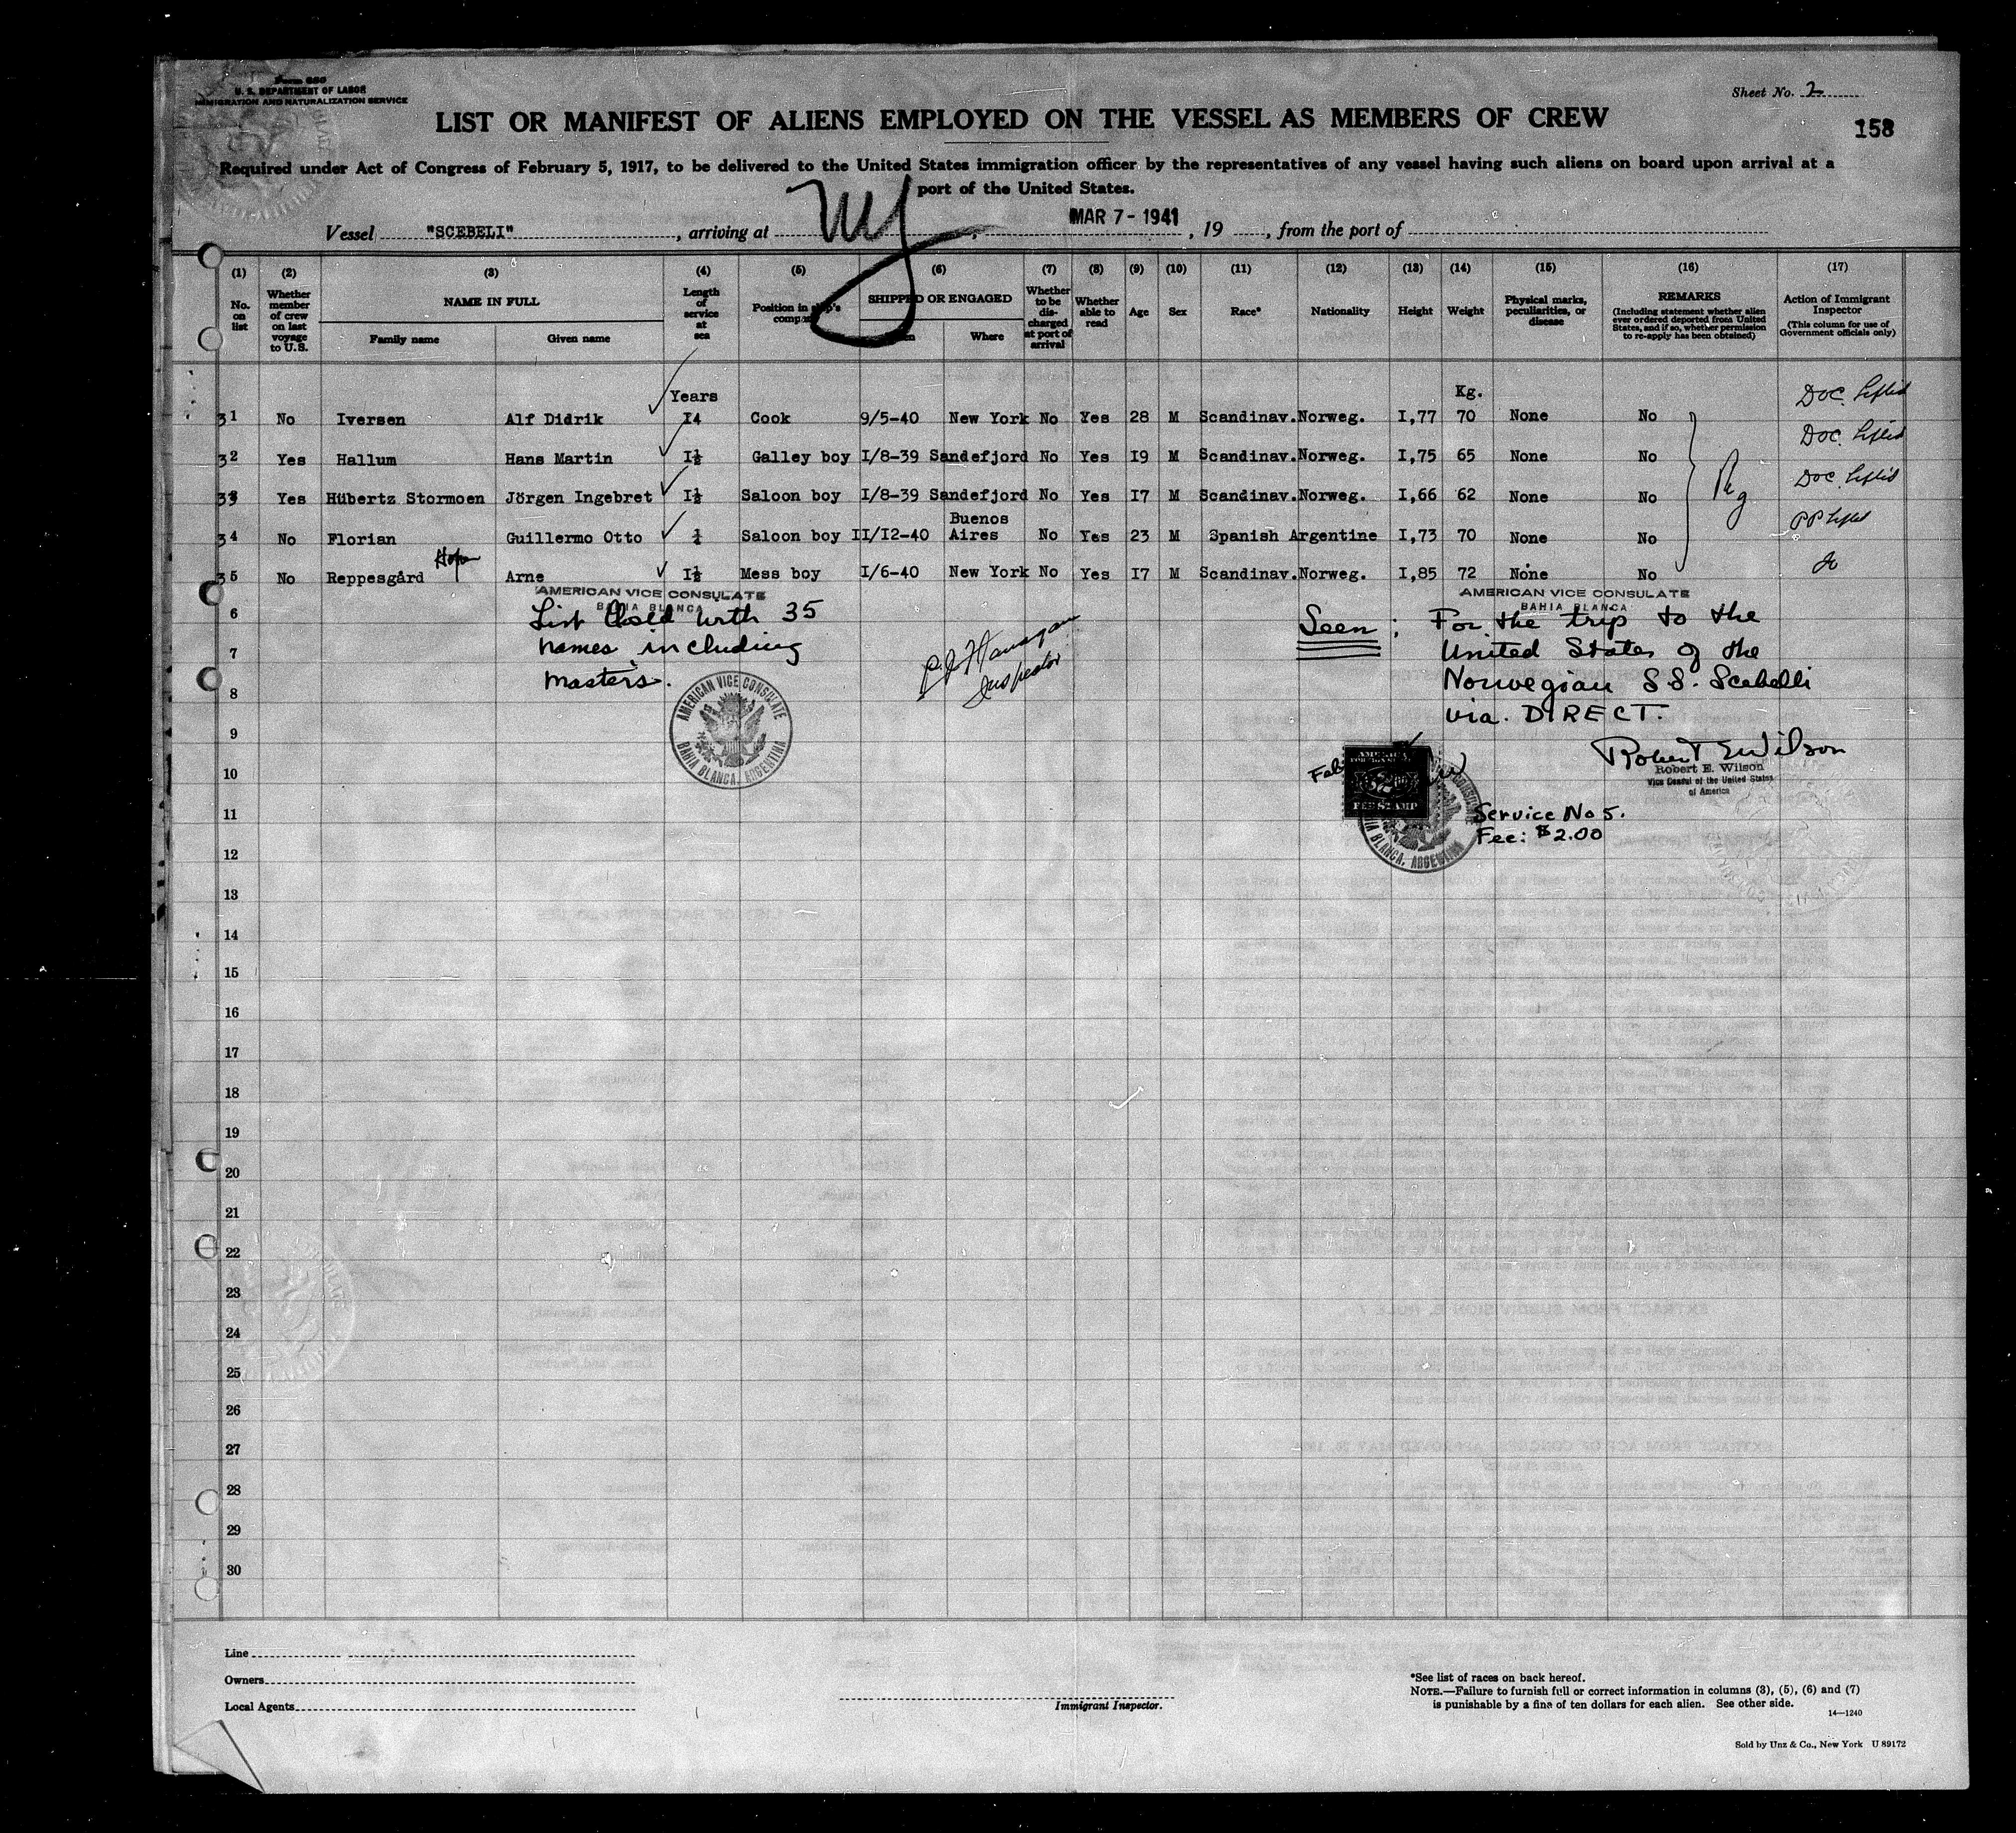 Form 680
U. S. DEPARTMENT OF LABOR
IMMIGRATION AND NATURALIZATION SERVICE
Sheet No. 2
LIST OR MANIFEST OF ALIENS EMPLOYED ON THE VESSEL AS MEMBERS OF CREW
158
Required under Act of Congress of February 5, 1917, to be delivered to the United States immigration officer by the representatives of any vessel having such aliens on board upon arrival at a
port of the United States.
Vessel "SCEBELI", arriving at NY, MAR 7 - 1941, 19, from the port of
(1) (2) (3) (4) (5) (6) (7) (8) (9) (10) (11) (12) (13) (14) (15) (16) (17)
No. on list
Whether member of crew on last voyage to U.S.
NAME IN FULL
Family name
Given name
Length of service at sea
Position in ship's company
SHIPPED OR ENGAGED
Where
Whether to be discharged at port of arrival
Whether able to read
Age
Sex
Race*
Nationality
Height
Weight
Physical marks, peculiarities, or disease
REMARKS
(Including statement whether alien ever ordered deported from United States, and if so, whether permission to re-apply has been obtained)
Action of Immigrant Inspector
(This column for use of Government officials only)
Years Kg.
31 No Iversen Alf Didrik I4 Cook 9/5-40 New York No Yes 28 M Scandinav. Norweg. I,77 70 None No Doc. Lifted
32 Yes Hallum Hans Martin I½ Galley boy I/8-39 Sandefjord No Yes I9 M Scandinav. Norweg. I,75 65 None No Doc. Lifted
33 Yes Hübertz Stormoen Jörgen Ingebret I½ Saloon boy I/8-39 Sandefjord No Yes I7 M Scandinav. Norweg. I,66 62 None No Doc. Lifted
34 No Florian Guillermo Otto Saloon boy II/I2-40 Buenos Aires No Yes 23 M Spanish Argentine I,73 70 None No PP Lifted
35 No Reppesgård Arne I½ Mess boy I/6-40 New York No Yes I7 M Scandinav. Norweg. I,85 72 None No
AMERICAN VICE CONSULATE
BAHIA BLANCA
List Closed with 35
names, including
masters.
AMERICAN VICE CONSULATE
BAHIA BLANCA, ARGENTINA
Inspector
AMERICAN VICE CONSULATE
BAHIA BLANCA
Seen: For the trip to the
United States of the
Norwegian S.S. Scebelli
via. DIRECT.
Robert E Wilson
Robert E. Wilson
Vice Consul of the United States
of America
Feb
FEE STAMP
BAHIA BLANCA, ARGENTINA
Service No 5.
Fee: $2.00
6
7
8
9
10
11
12
13
14
15
16
17
18
19
20
21
22
23
24
25
26
27
28
29
30
Line
Owners
Local Agents
Immigrant Inspector.
*See list of races on back hereof.
NOTE.—Failure to furnish full or correct information in columns (3), (5), (6) and (7)
is punishable by a fine of ten dollars for each alien. See other side.
14—1240
Sold by Unz & Co., New York U 89172